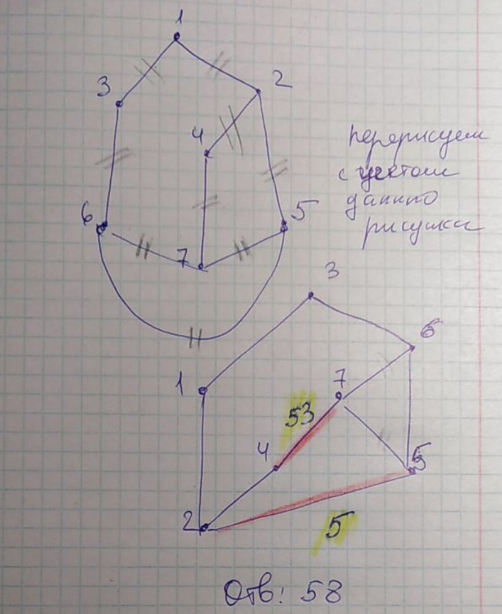 1
3
2
4
перерисуем
с учётом
данного
рисунка
6
5
7
3
6
1
7
53
4
5
2
5
Отв: 58